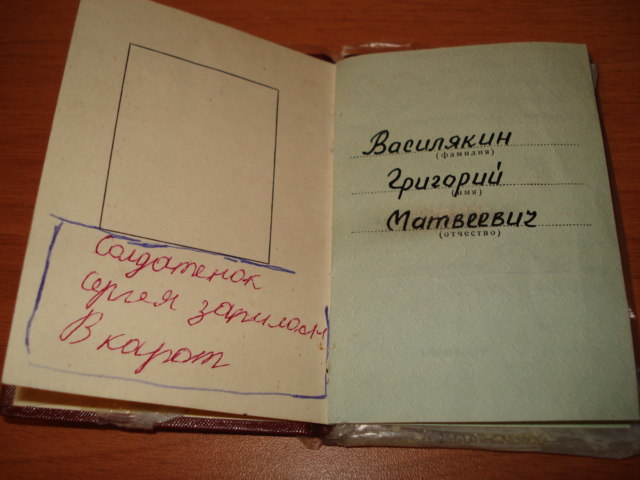 Солдатенок
Сергея
В карат
Василякин
(фамилия)
Григорий
(имя)
Матвеевич
(отчество)